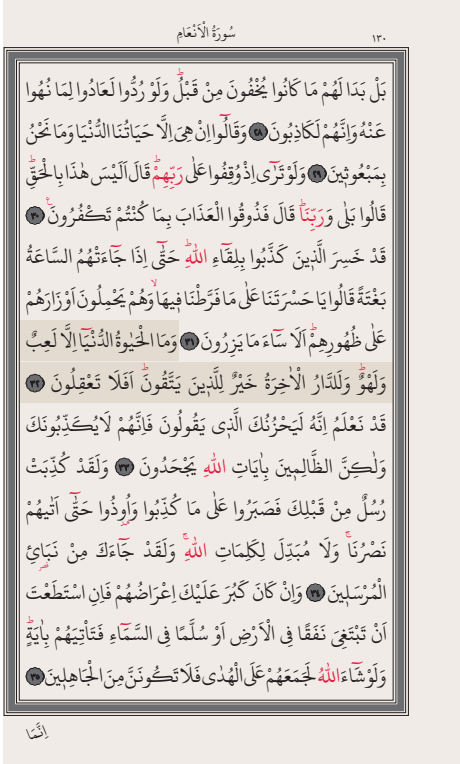 ١٣٠
سُورَةُ الْاَنْعَامِ
بَلْ بَدَا لَهُمْ مَا كَانُوا يُخْفُونَ مِنْ قَبْلُۜ وَلَوْ رُدُّوا لَعَادُوا لِمَا نُهُوا
عَنْهُ وَاِنَّهُمْ لَكَاذِبُونَ ٢٨ وَقَالُٓوا اِنْ هِيَ اِلَّا حَيَاتُنَا الدُّنْيَا وَمَا نَحْنُ
بِمَبْعُوثٖينَ ٢٩ وَلَوْ تَرٰٓى اِذْ وُقِفُوا عَلٰى رَبِّهِمْۜ قَالَ اَلَيْسَ هٰذَا بِالْحَقِّۜ
قَالُوا بَلٰى وَرَبِّنَاۜ قَالَ فَذُوقُوا الْعَذَابَ بِمَا كُنْتُمْ تَكْفُرُونَࣖ ٣٠
قَدْ خَسِرَ الَّذٖينَ كَذَّبُوا بِلِقَٓاءِ اللّٰهِۜ حَتّٰٓى اِذَا جَٓاءَتْهُمُ السَّاعَةُ
بَغْتَةً قَالُوا يَا حَسْرَتَنَا عَلٰى مَا فَرَّطْنَا فٖيهَاۙ وَهُمْ يَحْمِلُونَ اَوْزَارَهُمْ
عَلٰى ظُهُورِهِمْۜ اَلَا سَٓاءَ مَا يَزِرُونَ ٣١ وَمَا الْحَيٰوةُ الدُّنْيَٓا اِلَّا لَعِبٌ
وَلَهْوٌۜ وَلَلدَّارُ الْاٰخِرَةُ خَيْرٌ لِلَّذٖينَ يَتَّقُونَۜ اَفَلَا تَعْقِلُونَ ٣٢
قَدْ نَعْلَمُ اِنَّهُ لَيَحْزُنُكَ الَّذٖي يَقُولُونَ فَاِنَّهُمْ لَا يُكَذِّبُونَكَ
وَلٰكِنَّ الظَّالِمٖينَ بِاٰيَاتِ اللّٰهِ يَجْحَدُونَ ٣٣ وَلَقَدْ كُذِّبَتْ
رُسُلٌ مِنْ قَبْلِكَ فَصَبَرُوا عَلٰى مَا كُذِّبُوا وَاُو۫ذُوا حَتّٰٓى اَتٰيهُمْ
نَصْرُنَاۚ وَلَا مُبَدِّلَ لِكَلِمَاتِ اللّٰهِۚ وَلَقَدْ جَٓاءَكَ مِنْ نَبَا۬ئِ
الْمُرْسَلٖينَ ٣٤ وَاِنْ كَانَ كَبُرَ عَلَيْكَ اِعْرَاضُهُمْ فَاِنِ اسْتَطَعْتَ
اَنْ تَبْتَغِيَ نَفَقًا فِي الْاَرْضِ اَوْ سُلَّمًا فِي السَّمَٓاءِ فَتَأْتِيَهُمْ بِاٰيَةٍۜ
وَلَوْ شَٓاءَ اللّٰهُ لَجَمَعَهُمْ عَلَى الْهُدٰى فَلَا تَكُونَنَّ مِنَ الْجَاهِلٖينَ ٣٥
اِنَّمَا